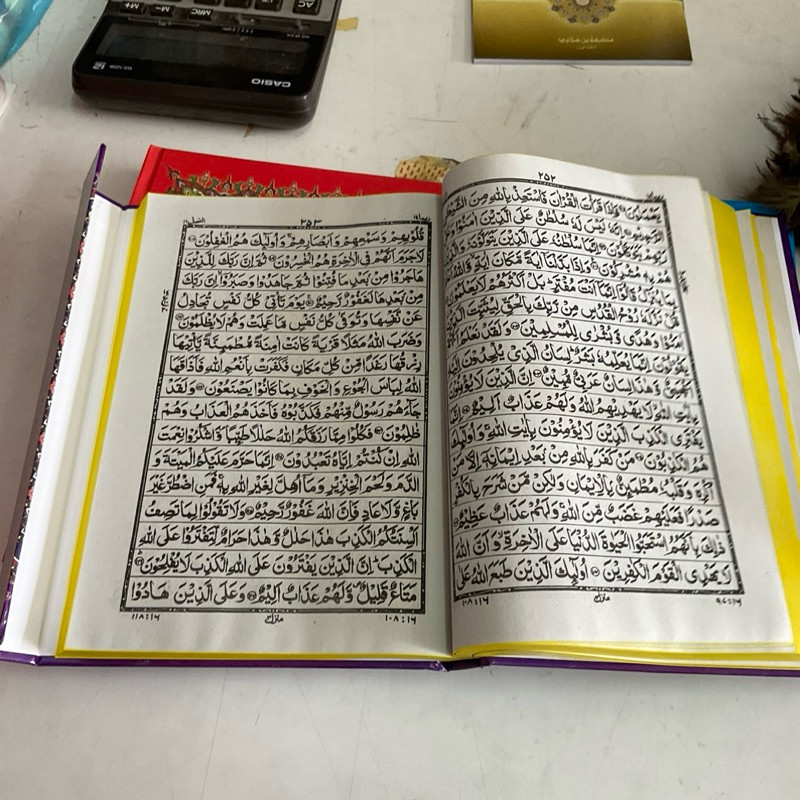 CASIO
AC
MRC
M−
M+
۲۵۲
يَعْمَلُوْنَ ۝ فَاِذَا قَرَاْتَ الْقُرْاٰنَ فَاسْتَعِذْ بِاللّٰهِ مِنَ
الرَّجِيْمِ ۝ اِنَّهٗ لَيْسَ لَهٗ سُلْطٰنٌ عَلَى الَّذِيْنَ اٰمَنُوْا
رَبِّهِمْ يَتَوَكَّلُوْنَ ۝ اِنَّمَا سُلْطٰنُهٗ عَلَى الَّذِيْنَ يَتَوَلَّوْنَهٗ
هُمْ بِهٖ مُشْرِكُوْنَ ۝ وَاِذَا بَدَّلْنَاۤ اٰيَةً مَّكَانَ اٰيَةٍ ۙ وَّاللّٰهُ
بِمَا يُنَزِّلُ قَالُوْۤا اِنَّمَاۤ اَنْتَ مُفْتَرٍ ؕ بَلْ اَكْثَرُهُمْ لَا يَعْلَمُوْنَ
قُلْ نَزَّلَهٗ رُوْحُ الْقُدُسِ مِنْ رَّبِّكَ بِالْحَقِّ لِيُثَبِّتَ الَّذِيْنَ
اٰمَنُوْا وَهُدًى وَّبُشْرٰى لِلْمُسْلِمِيْنَ ۝ وَلَقَدْ نَعْلَمُ اَنَّهُمْ
يَقُوْلُوْنَ اِنَّمَا يُعَلِّمُهٗ بَشَرٌ ؕ لِسَانُ الَّذِيْ يُلْحِدُوْنَ اِلَيْهِ
اَعْجَمِيٌّ وَّهٰذَا لِسَانٌ عَرَبِيٌّ مُّبِيْنٌ ۝ اِنَّ الَّذِيْنَ لَا يُؤْمِنُوْنَ
بِاٰيٰتِ اللّٰهِ ۙ لَا يَهْدِيْهِمُ اللّٰهُ وَلَهُمْ عَذَابٌ اَلِيْمٌ ۝ اِنَّمَا
يَفْتَرِي الْكَذِبَ الَّذِيْنَ لَا يُؤْمِنُوْنَ بِاٰيٰتِ اللّٰهِ ۚ وَاُولٰٓئِكَ
هُمُ الْكٰذِبُوْنَ ۝ مَنْ كَفَرَ بِاللّٰهِ مِنْۢ بَعْدِ اِيْمَانِهٖۤ اِلَّا مَنْ
اُكْرِهَ وَقَلْبُهٗ مُطْمَئِنٌّۢ بِالْاِيْمَانِ وَلٰكِنْ مَّنْ شَرَحَ بِالْكُفْرِ
صَدْرًا فَعَلَيْهِمْ غَضَبٌ مِّنَ اللّٰهِ ۚ وَلَهُمْ عَذَابٌ عَظِيْمٌ ۝
ذٰلِكَ بِاَنَّهُمُ اسْتَحَبُّوا الْحَيٰوةَ الدُّنْيَا عَلَى الْاٰخِرَةِ ۙ وَاَنَّ اللّٰهَ
لَا يَهْدِي الْقَوْمَ الْكٰفِرِيْنَ ۝ اُولٰٓئِكَ الَّذِيْنَ طَبَعَ اللّٰهُ عَلٰى
۱۰۸:۱۶
منزل۳
۹۷:۱۶
۲۵۳
قُلُوْبِهِمْ وَسَمْعِهِمْ وَاَبْصَارِهِمْ ۚ وَاُولٰٓئِكَ هُمُ الْغٰفِلُوْنَ ۝
لَا جَرَمَ اَنَّهُمْ فِي الْاٰخِرَةِ هُمُ الْخٰسِرُوْنَ ۝ ثُمَّ اِنَّ رَبَّكَ لِلَّذِيْنَ
هَاجَرُوْا مِنْۢ بَعْدِ مَا فُتِنُوْا ثُمَّ جٰهَدُوْا وَصَبَرُوْۤا ۙ اِنَّ رَبَّكَ
مِنْۢ بَعْدِهَا لَغَفُوْرٌ رَّحِيْمٌ ۝ يَوْمَ تَاْتِيْ كُلُّ نَفْسٍ تُجَادِلُ
عَنْ نَّفْسِهَا وَتُوَفّٰى كُلُّ نَفْسٍ مَّا عَمِلَتْ وَهُمْ لَا يُظْلَمُوْنَ ۝
وَضَرَبَ اللّٰهُ مَثَلًا قَرْيَةً كَانَتْ اٰمِنَةً مُّطْمَئِنَّةً يَّاْتِيْهَا
رِزْقُهَا رَغَدًا مِّنْ كُلِّ مَكَانٍ فَكَفَرَتْ بِاَنْعُمِ اللّٰهِ فَاَذَاقَهَا
اللّٰهُ لِبَاسَ الْجُوْعِ وَالْخَوْفِ بِمَا كَانُوْا يَصْنَعُوْنَ ۝ وَلَقَدْ
جَآءَهُمْ رَسُوْلٌ مِّنْهُمْ فَكَذَّبُوْهُ فَاَخَذَهُمُ الْعَذَابُ وَهُمْ
ظٰلِمُوْنَ ۝ فَكُلُوْا مِمَّا رَزَقَكُمُ اللّٰهُ حَلٰلًا طَيِّبًا ۪ وَّاشْكُرُوْا نِعْمَتَ
اللّٰهِ اِنْ كُنْتُمْ اِيَّاهُ تَعْبُدُوْنَ ۝ اِنَّمَا حَرَّمَ عَلَيْكُمُ الْمَيْتَةَ وَ
الدَّمَ وَلَحْمَ الْخِنْزِيْرِ وَمَاۤ اُهِلَّ لِغَيْرِ اللّٰهِ بِهٖ ۚ فَمَنِ اضْطُرَّ غَيْرَ
بَاغٍ وَّلَا عَادٍ فَاِنَّ اللّٰهَ غَفُوْرٌ رَّحِيْمٌ ۝ وَلَا تَقُوْلُوْا لِمَا تَصِفُ
اَلْسِنَتُكُمُ الْكَذِبَ هٰذَا حَلٰلٌ وَّهٰذَا حَرَامٌ لِّتَفْتَرُوْا عَلَى اللّٰهِ
الْكَذِبَ ؕ اِنَّ الَّذِيْنَ يَفْتَرُوْنَ عَلَى اللّٰهِ الْكَذِبَ لَا يُفْلِحُوْنَ ۝
مَتَاعٌ قَلِيْلٌ ۪ وَّلَهُمْ عَذَابٌ اَلِيْمٌ ۝ وَعَلَى الَّذِيْنَ هَادُوْا
۱۱۸:۱۶
منزل۳
۱۰۸:۱۶